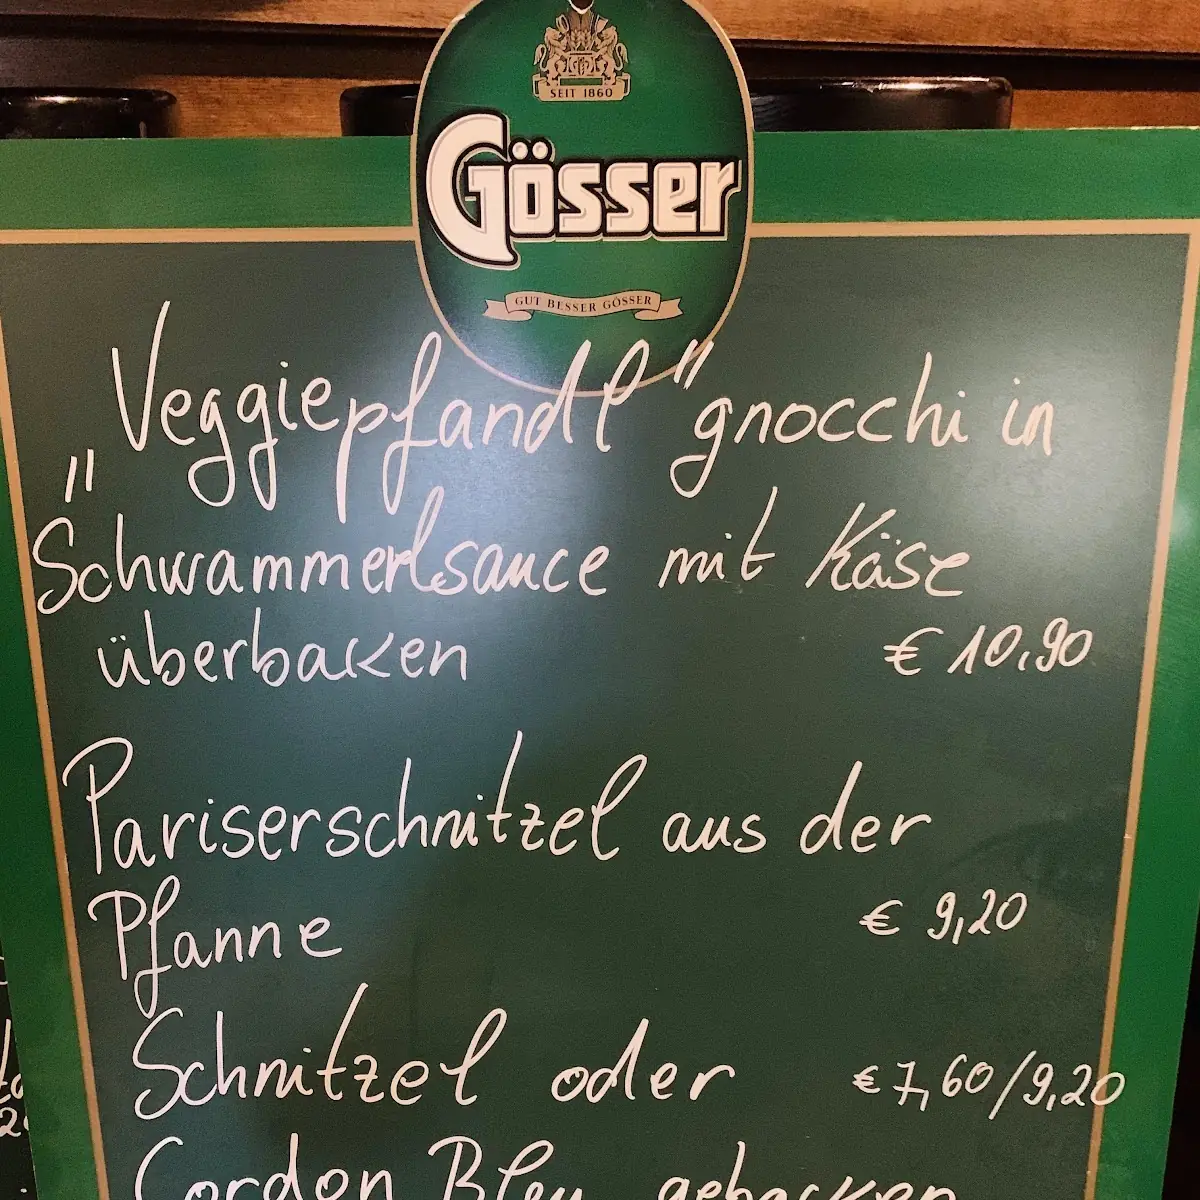 SEIT 1860
Gösser
GUT BESSER GÖSSER
„Veggiepfandl" gnocchi in
Schwammerlsauce mit Käse
überbacken € 10,90
Pariserschnitzel aus der
Pfanne € 9,20
Schnitzel oder € 7,60/9,20
Cordon Bleu gebacken